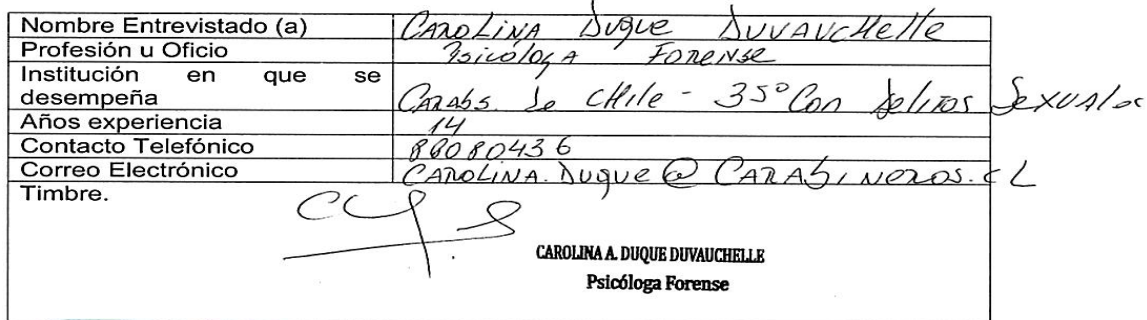 Nombre Entrevistado (a) CAROLINA DUQUE DUVAUCHELLE
Profesión u Oficio Psicóloga FORENSE
Institución en que se
desempeña CARABS. de CHILE - 35° Com Delitos Sexuales
Años experiencia 14
Contacto Telefónico 88080436
Correo Electrónico CAROLINA.DUQUE@CARABINEROS.CL
Timbre.
CAROLINA A. DUQUE DUVAUCHELLE
Psicóloga Forense